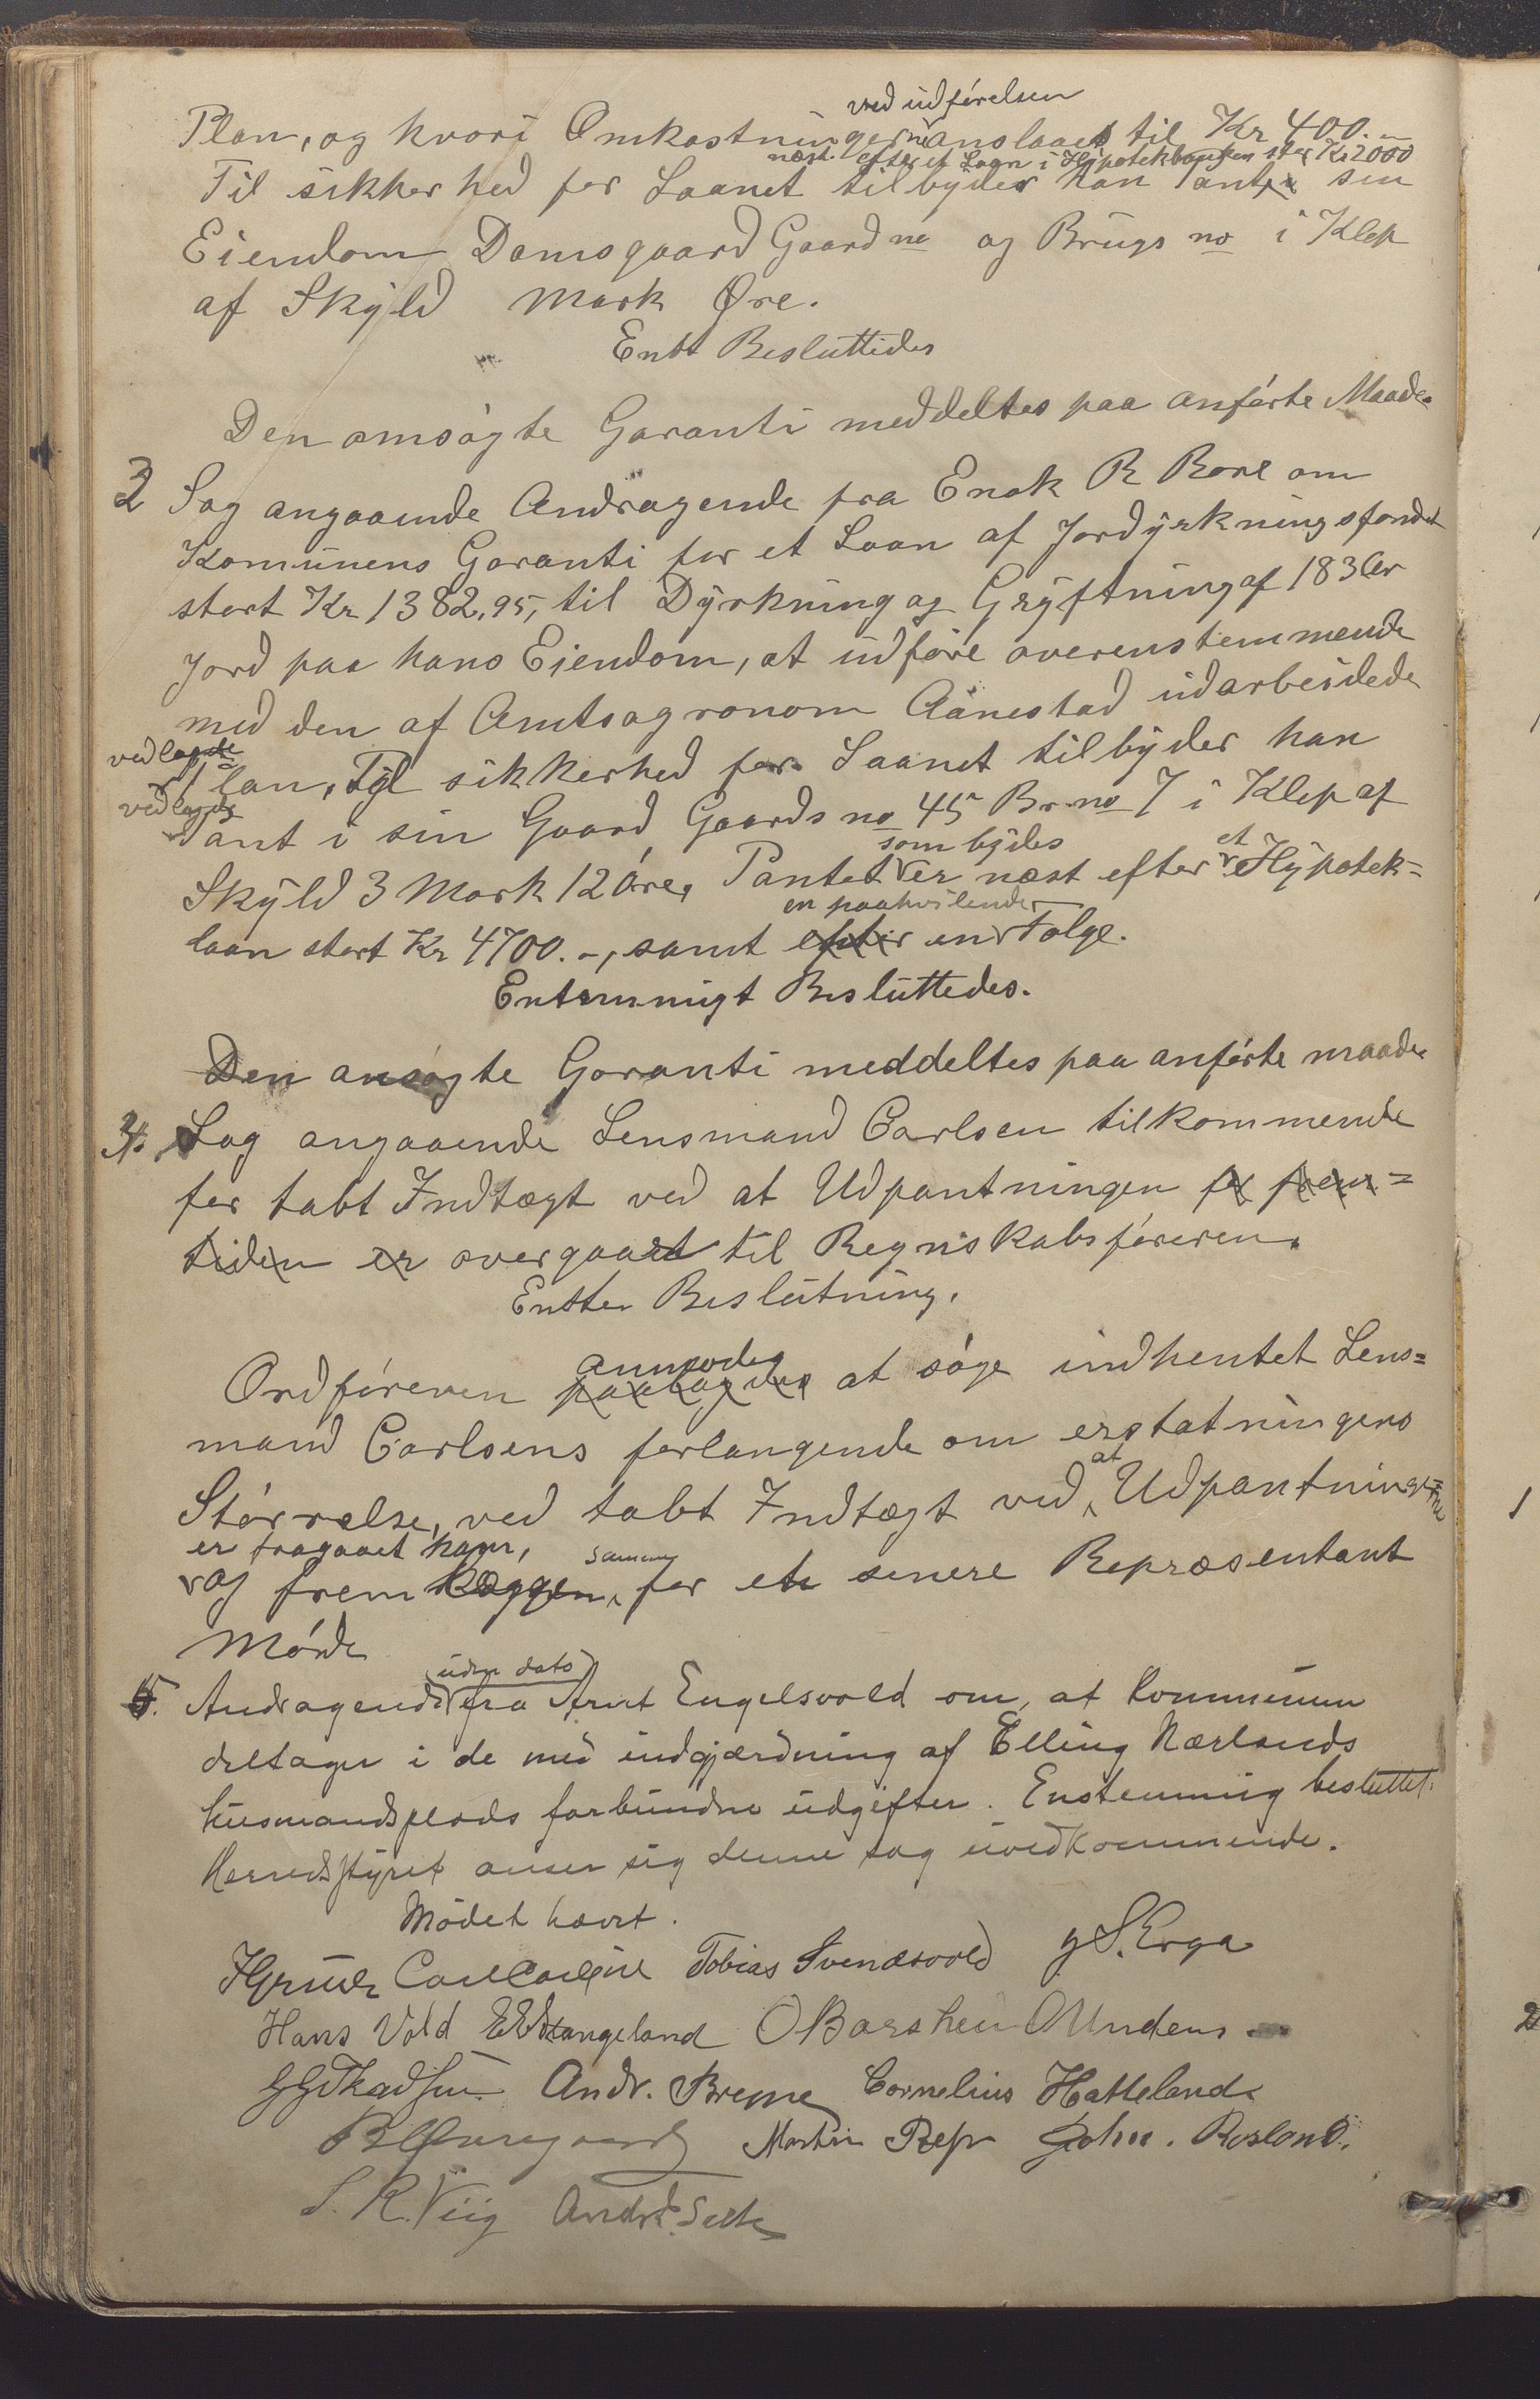 ved udførelsen
Plan, og hvori Omkostningerne anslaaes til Kr 400.-
næst efter et Laan i Hypotekbanken stor Kr 2000
Til sikkerhed for Laanet tilbyder han Pant i sin
Eiendom Damsgaard Gaard no og Brugs no i Klep
af Skyld Mark Øre.
Enst Besluttedes
Den ansøgte Garanti meddeltes paa anførte Maade.
3 Sag angaaende Andragende fra Enok R Bore om
Komunens Garanti for et Laan af Jordyrkningsfondet
stort Kr 1382,95, til Dyrkning og Grøftning af 183 Ar
Jord paa hans Eiendom, at udføre overenstemmende
med den af Amtsagronom Aanestad udarbeidede
vedlagte
Plan, Til sikkerhed for Laanet tilbyder han
vedlagte
Pant i sin Gaard Gaards no 45 Br. no 7 i Klep af
som bydes et
Skyld 3 Mark 12 Øre, Pantet er næst efter Hypotek=
en paahvilende
laan stort Kr 4700.-, samt efter en Folge.
Entsemmigt Besluttedes.
Den ansøgte Garanti meddeltes paa anførte maade
4. Sag angaaende Lensmand Carlsen tilkommende
for tabt Indtægt ved at Udpantningen for frem=
tiden er overgaaet til Regnskabsføreren.
Enstte Beslutning.
anmodes
Ordføreren paalægges at søge indhentet Lens=
mand Carlsens forlangende om erstatningens
at
Størrelse, ved tabt Indtægt ved Udpantningerne
er fragaaet ham, samme
og fremlægges for et senere Repræsentant
Møde
(uden dato)
5. Andragende fra Arnt Engelsvold om, at kommunen
deltager i de med indgjærdning af Elling Nærlands
husmandsplads forbundne udgifter. Enstemmig besluttet:
Herredsstyret anser sig denne sag uvedkommende.
Mødet hævet.
Tobias Svendsvold G S. Erga
Hans Vold Stangeland O Barshei O Undem
Andr. Bryne Cornelius Hatteland
Martin Rep John. Rosland.
S. R. Viig Andr. Sele